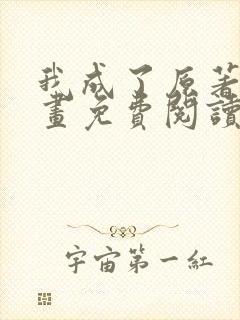 我成了原著
畫免費閱讀
宇宙第一紅